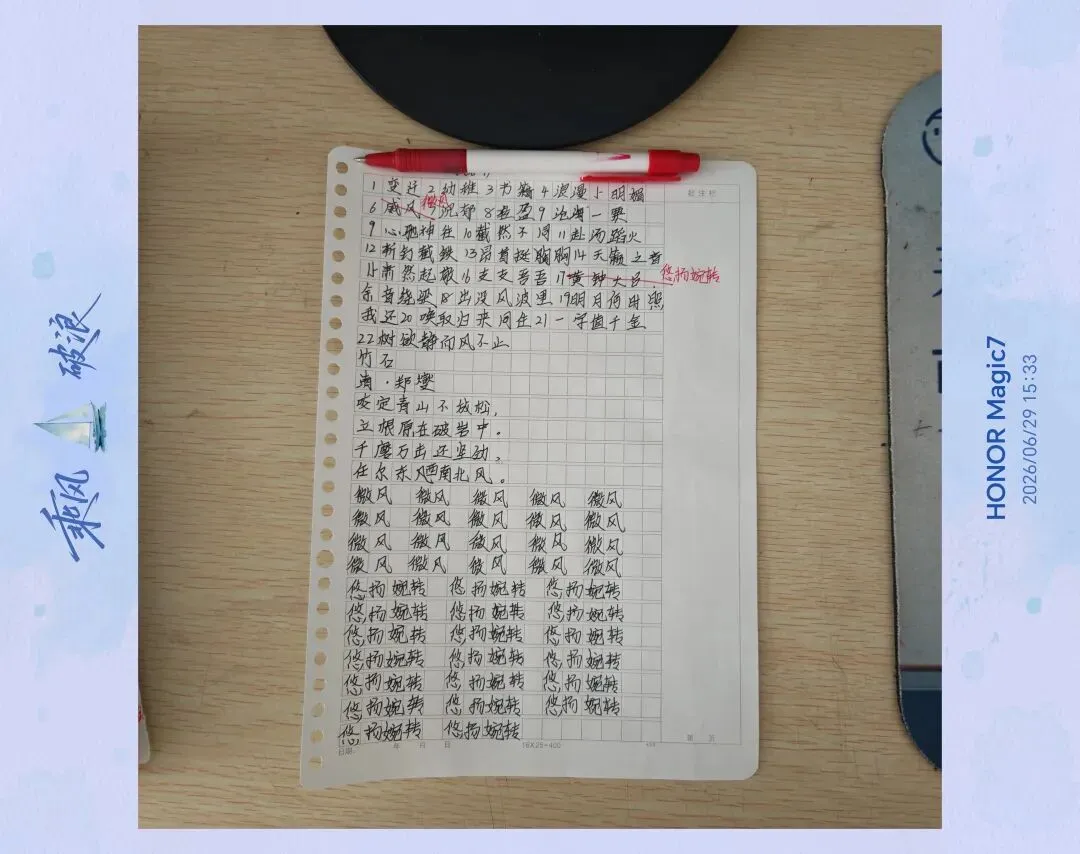 1 变迁 2 幼稚 3 书籍 4 浪漫 5 明媚
批注栏
6 威风 微风 7 沉郁 8 轻盈 9 沧海一粟
9 心驰神往 10 截然不同 11 赴汤蹈火
12 斩钉截铁 13 昂首挺胸胸 14 天籁之音
15 肃然起敬 16 支支吾吾 17 黄钟大吕 悠扬婉转
余音绕梁 18 出没风波里 19 明月何时照
我还 20 唤取归来同住 21 一字值千金
22 树欲静而风不止
竹石
清·郑燮
咬定青山不放松,
立根原在破岩中。
千磨万击还坚劲,
任尔东风西南北风。
微风 微风 微风 微风 微风
微风 微风 微风 微风 微风
微风 微风 微风 微风 微风
微风 微风 微风 微风 微风
悠扬婉转 悠扬婉转 悠扬婉转
悠扬婉转 悠扬婉转 悠扬婉转
悠扬婉转 悠扬婉转 悠扬婉转
悠扬婉转 悠扬婉转 悠扬婉转
悠扬婉转 悠扬婉转 悠扬婉转
悠扬婉转 悠扬婉转 悠扬婉转
悠扬婉转 悠扬婉转
日期: 年 月 日 16X25=400 第 页
乘风 破浪
HONOR Magic7
2026/06/29 15:33